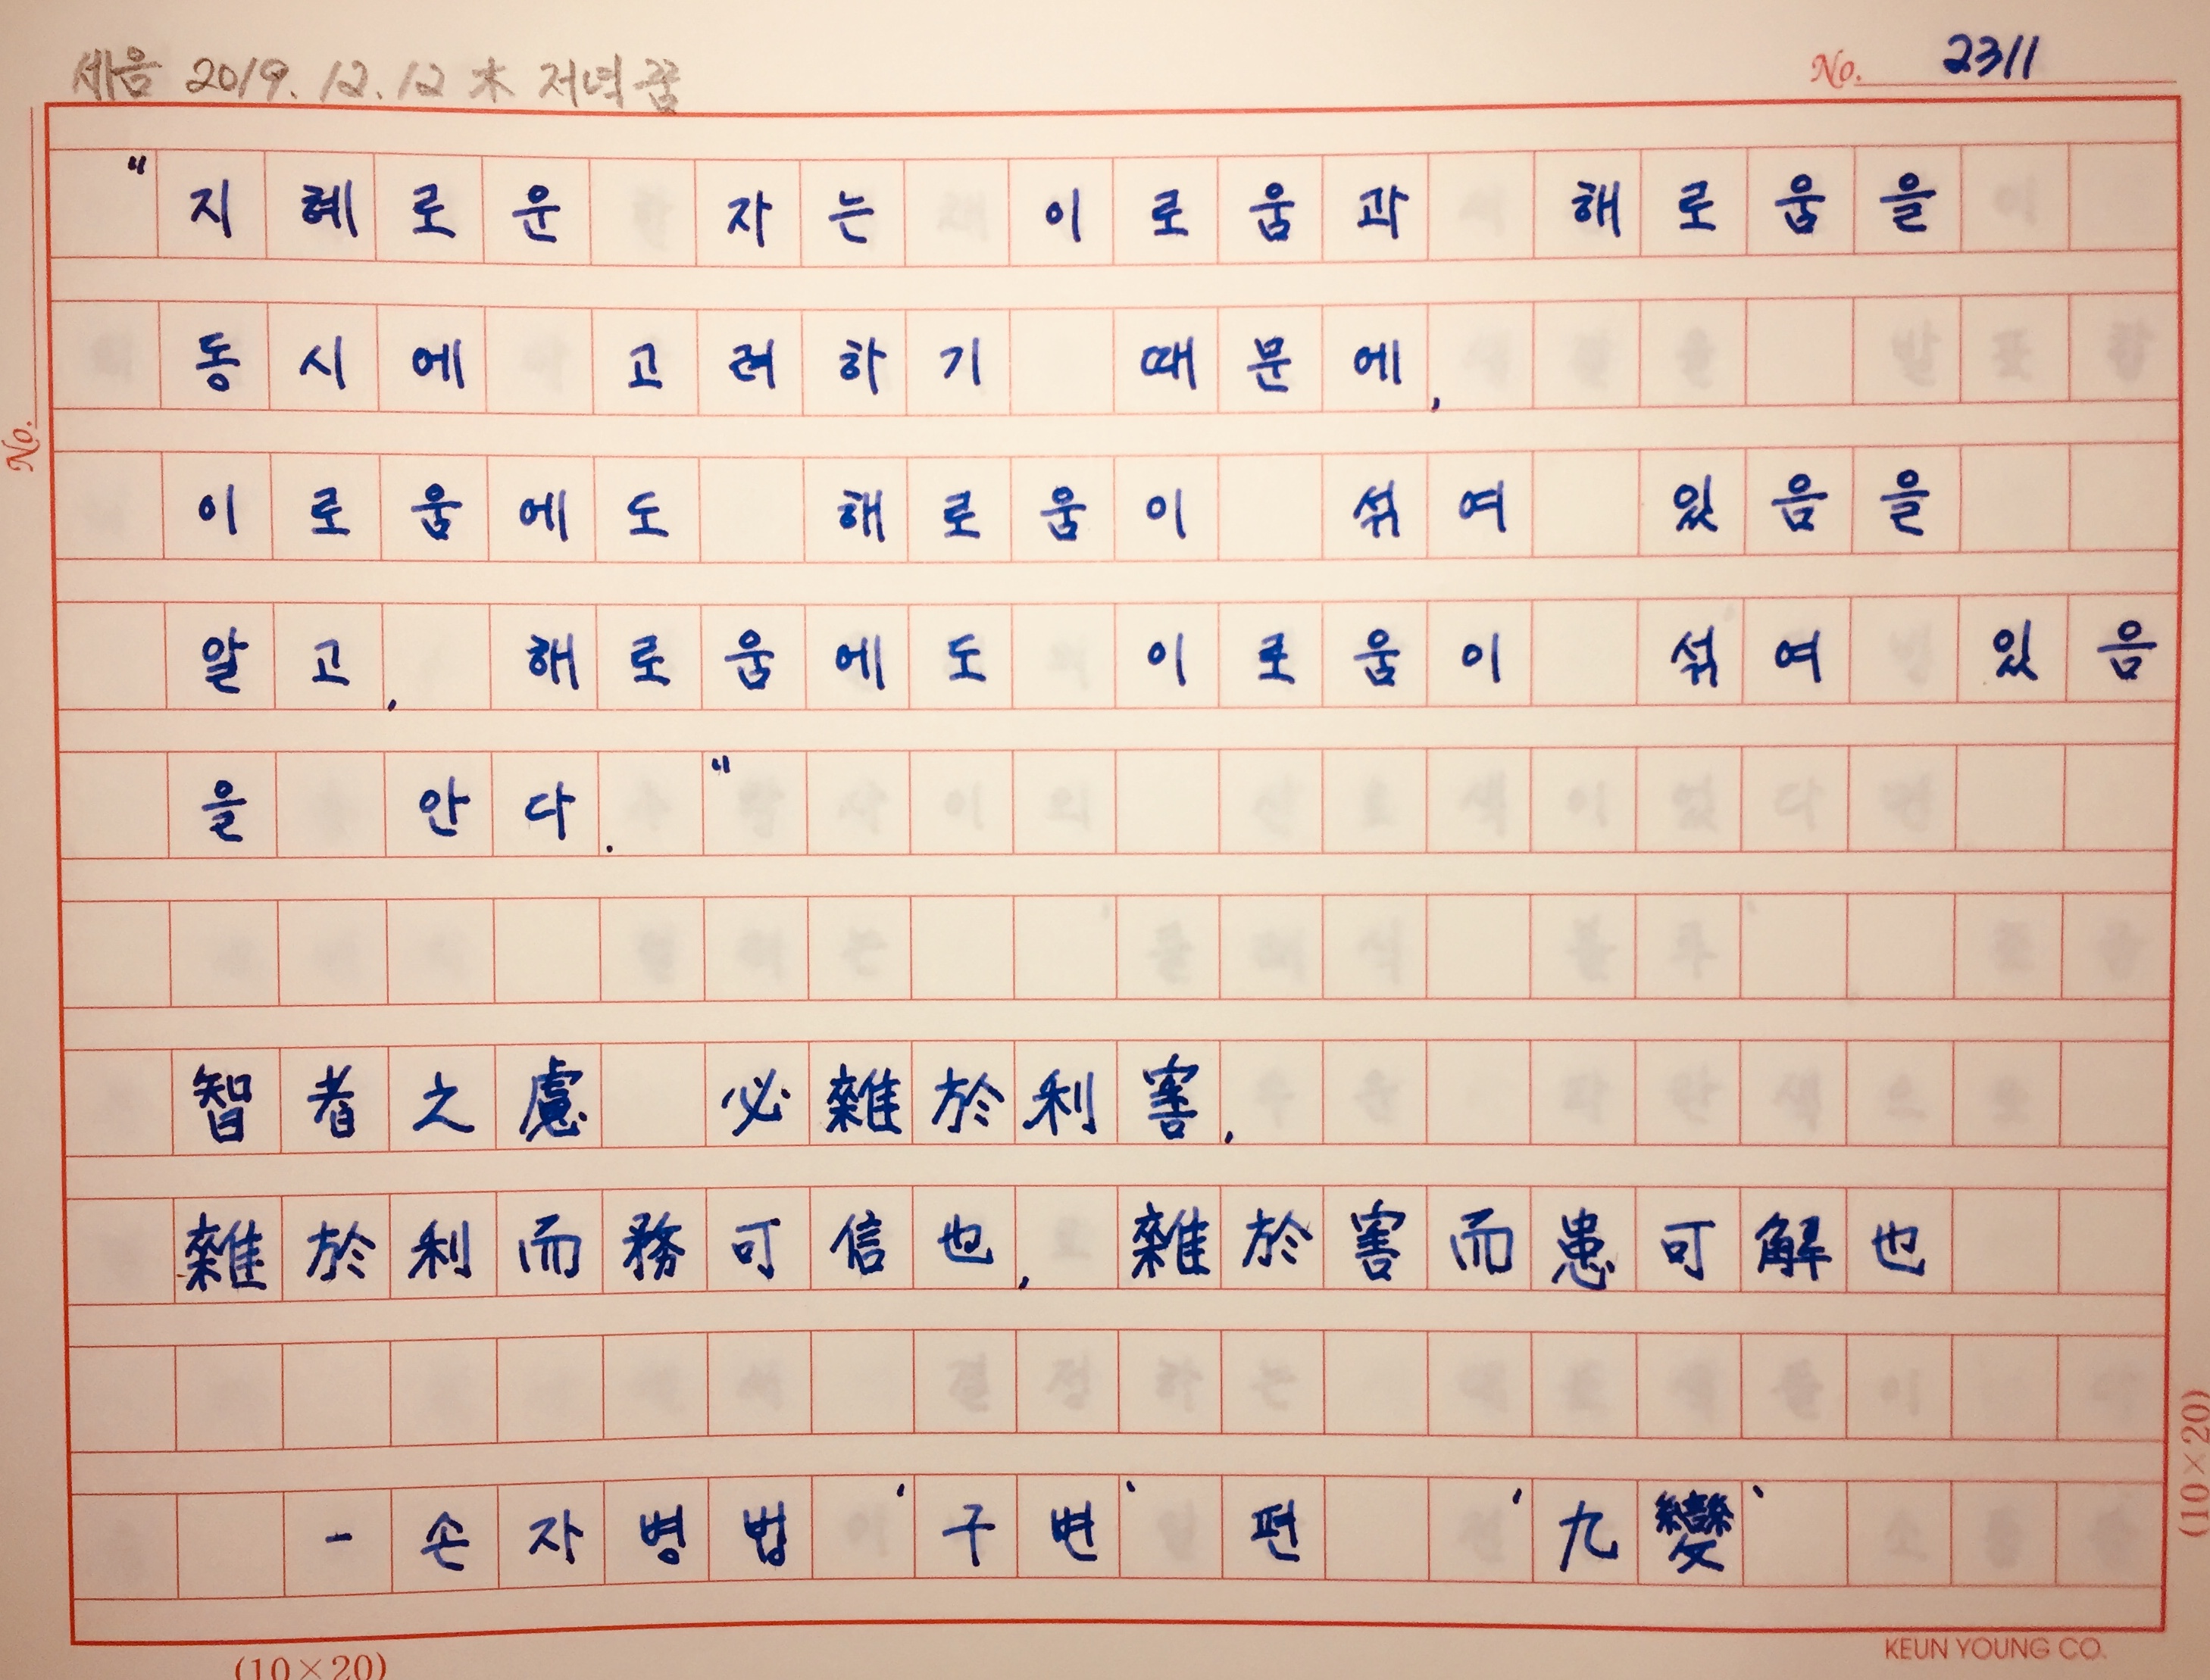 세음 2019. 12. 12 木 저녁꿈
No. 2311
"지혜로운 자는 이로움과 해로움을
동시에 고려하기 때문에,
이로움에도 해로움이 섞여 있음을
알고, 해로움에도 이로움이 섞여 있음
을 안다."
智者之慮 必雜於利害,
雜於利而務可信也, 雜於害而患可解也
- 손자병법 '구변' 편 '九變'
No.
(10×20)
KEUN YOUNG CO.
(10×20)